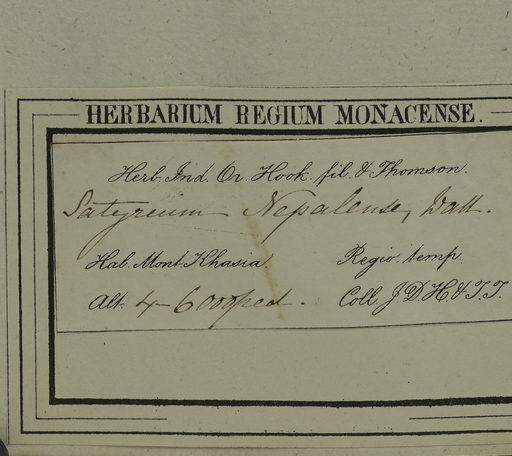 HERBARIUM REGIUM MONACENSE.
Herb. Ind. Or. Hook. fil. & Thomson.
Satyrium Nepalense, Wall.
Hab. Mont. Khasia Regio. temp.
Alt. 4-6000 ped. Coll. J. D. H. & T. T.